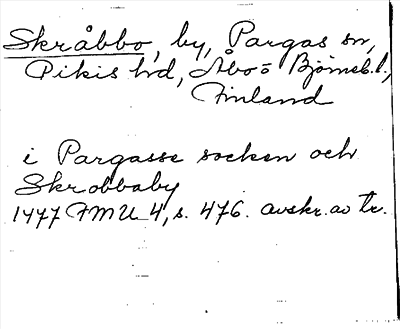 Skråbbo, by, Pargas sn,
Pikis hd, Åbo o Björneb. l.,
Finland
i Pargasse socken och
Skrobbaby
1477 FMU 4, s. 476. avskr. av tr.